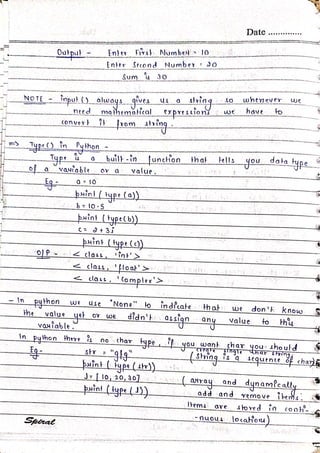 Date ..............
Output - Enter First Number - 10
Enter Second Number - 20
Sum is 30
NOTE - input() always gives us a string so whenever we
need mathematical expressions we have to
convert it from string.
=> Type() in Python -
Type is a built-in function that tells you data type
of a variable or a value.
Eg - a = 10
print (type(a))
b = 10.5
print (type(b))
c = 2+3j
print (type(c))
O/P - < class, 'int'>
< class, 'float'>
< class, 'complex'>
- In python we use "None" to indicate that we don't know
the value yet or we didn't assign any value to this
variable.
In python there is no char type, if you want char you should
single char string
Eg- str = "g|g" (string is a sequence of chars)
print (type (str))
l = [10, 20, 30] (array and dynamically
print (type (l)) add and remove items.
Items are stored in conti-
-nuous locations)
Spiral